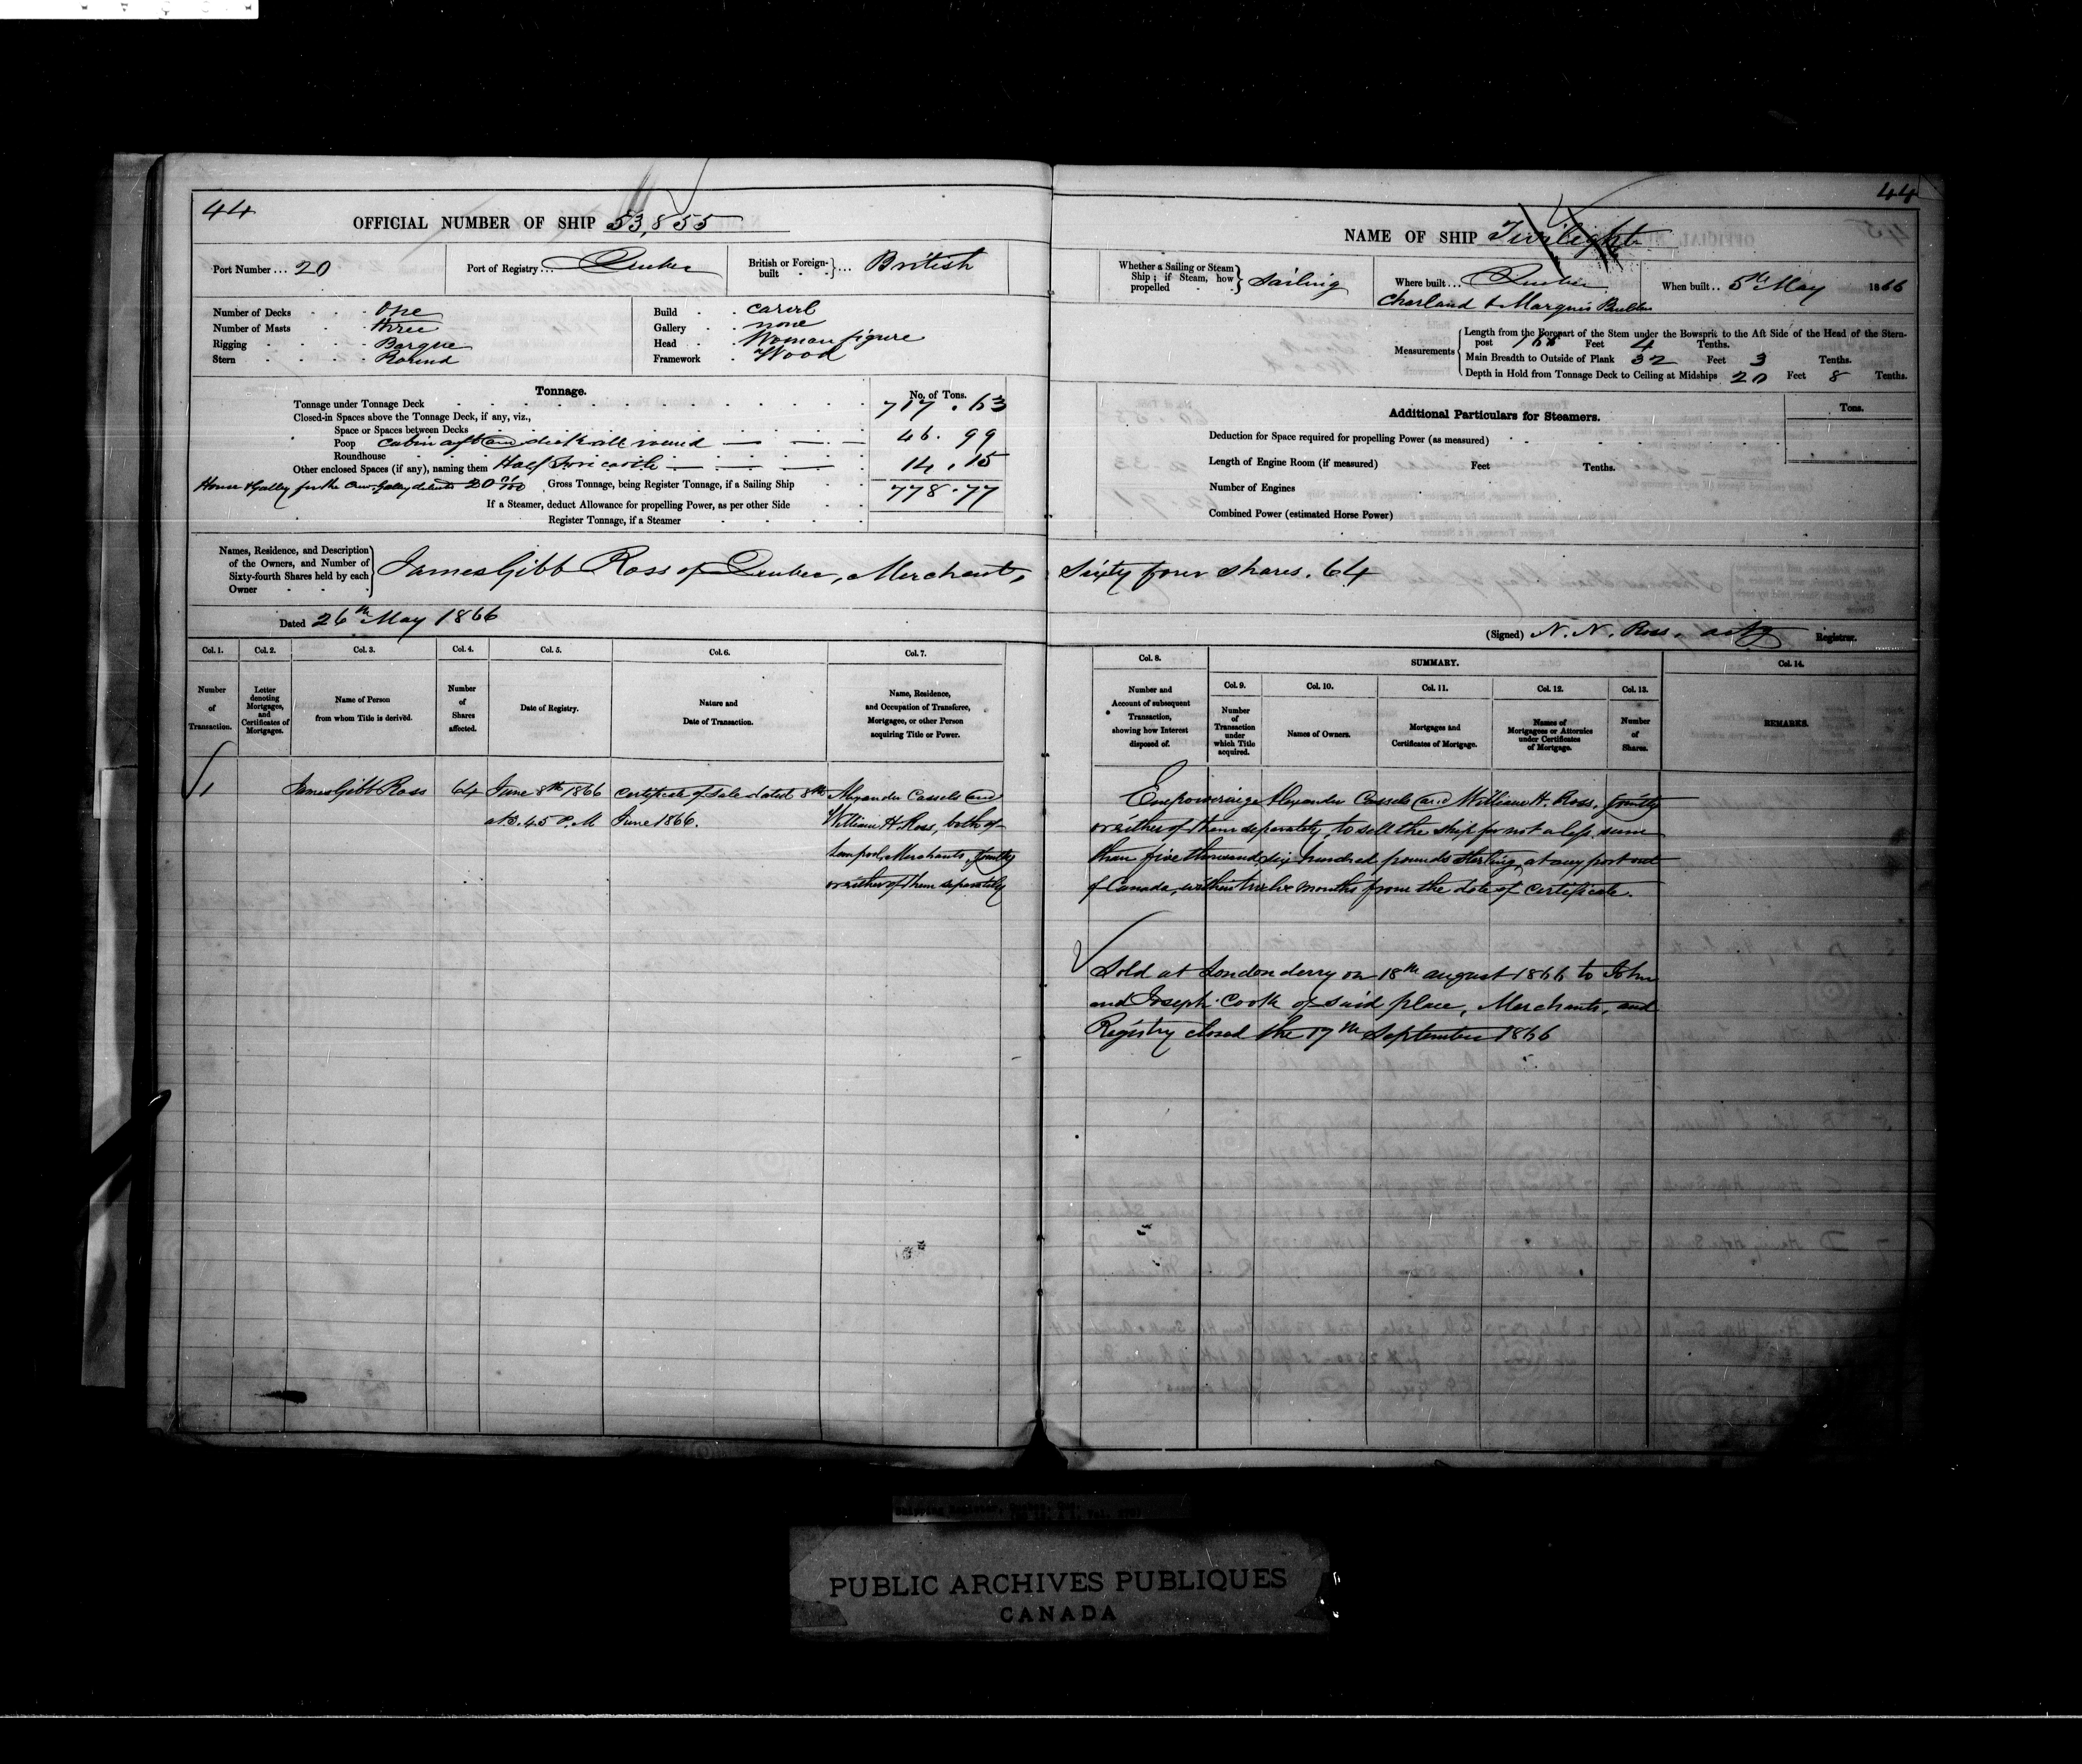 44
OFFICIAL NUMBER OF SHIP 53,855
Port Number... 20
Port of Registry... Quebec
British or Foreign-built }... British
Number of Decks One
Number of Masts three
Rigging Barque
Stern Round
Build carvel
Gallery none
Head Woman figure
Framework Wood
Tonnage.
No. of Tons.
Tonnage under Tonnage Deck 717.63
Closed-in Spaces above the Tonnage Deck, if any, viz.,
Space or Spaces between Decks
Poop Cabin aft and deck all round 46.99
Roundhouse
Other enclosed Spaces (if any), naming them Half Forecastle 14.15
House & Galley for the Crew
Gross Tonnage, being Register Tonnage, if a Sailing Ship 778.77
If a Steamer, deduct Allowance for propelling Power, as per other Side
Register Tonnage, if a Steamer
Names, Residence, and Description of the Owners, and Number of Sixty-fourth Shares held by each Owner
James Gibb Ross of Quebec, Merchant,
Dated 26th May 1866
Col. 1. Col. 2. Col. 3. Col. 4. Col. 5. Col. 6. Col. 7.
Number of Transaction.
Letter denoting Mortgages, and Certificates of Mortgages.
Name of Person from whom Title is derived.
Number of Shares affected.
Date of Registry.
Nature and Date of Transaction.
Name, Residence, and Occupation of Transferee, Mortgagee, or other Person acquiring Title or Power.
1 James Gibb Ross 64 June 8th 1866 Certificate of Sale dated 8th Alexander Cassels and
at 3.45 P.M June 1866. William H. Ross, both of
Liverpool, Merchants, jointly
or either of them separately
44
NAME OF SHIP Twilight
Whether a Sailing or Steam Ship; if Steam, how propelled } Sailing
Where built... Quebec
Charland & Marquis Builders
When built.. 5th May 1866
Measurements
Length from the Forepart of the Stem under the Bowsprit to the Aft Side of the Head of the Stern-
post Feet 4 Tenths.
Main Breadth to Outside of Plank 32 Feet 3 Tenths.
Depth in Hold from Tonnage Deck to Ceiling at Midships 20 Feet 8 Tenths.
Additional Particulars for Steamers.
Tons.
Deduction for Space required for propelling Power (as measured)
Length of Engine Room (if measured) Feet Tenths.
Number of Engines
Combined Power (estimated Horse Power)
Sixty four shares. 64
(Signed) N. N. Ross, actg Registrar.
Col. 8. SUMMARY. Col. 14.
Col. 9. Col. 10. Col. 11. Col. 12. Col. 13.
Number and Account of subsequent Transaction, showing how Interest disposed of.
Number of Transaction under which Title acquired.
Names of Owners.
Mortgages and Certificates of Mortgage.
Names of Mortgagees or Attornies under Certificates of Mortgage.
Number of Shares.
REMARKS.
Empowering Alexander Cassels and William H. Ross, jointly
or either of them separately, to sell the ship for not a less sum
than five thousand six hundred pounds sterling, at any port out
of Canada, within twelve months from the date of certificate.
Sold at Londonderry on 18th august 1866 to John
and Joseph Cook of said place, Merchants, and
Registry closed the 17th September 1866
PUBLIC ARCHIVES PUBLIQUES
CANADA